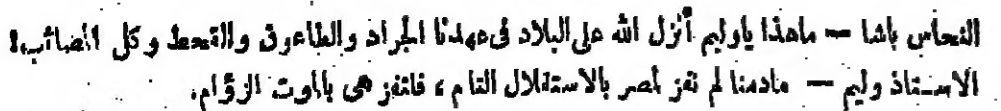 النحاس باشا — ماهذا ياوليم أنزل الله على البلاد فى عهدنا الجراد والطاعون والقحط وكل المصائب!
الاستاذ وليم — مادمنا لم نفز لمصر بالاستقلال التام ، فلتفز هى بالموت الزؤام.